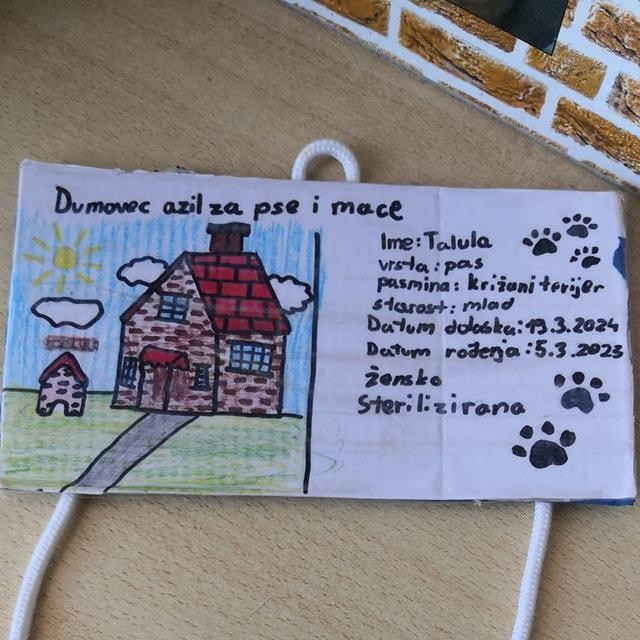 Dumovec azil za pse i mace
Ime: Talula
vrsta: pas
pasmina: križani terijer
starost: mlad
Datum dolaska: 19.3.2024
Datum rođenja: 5.3.2023
žensko
Sterilizirana